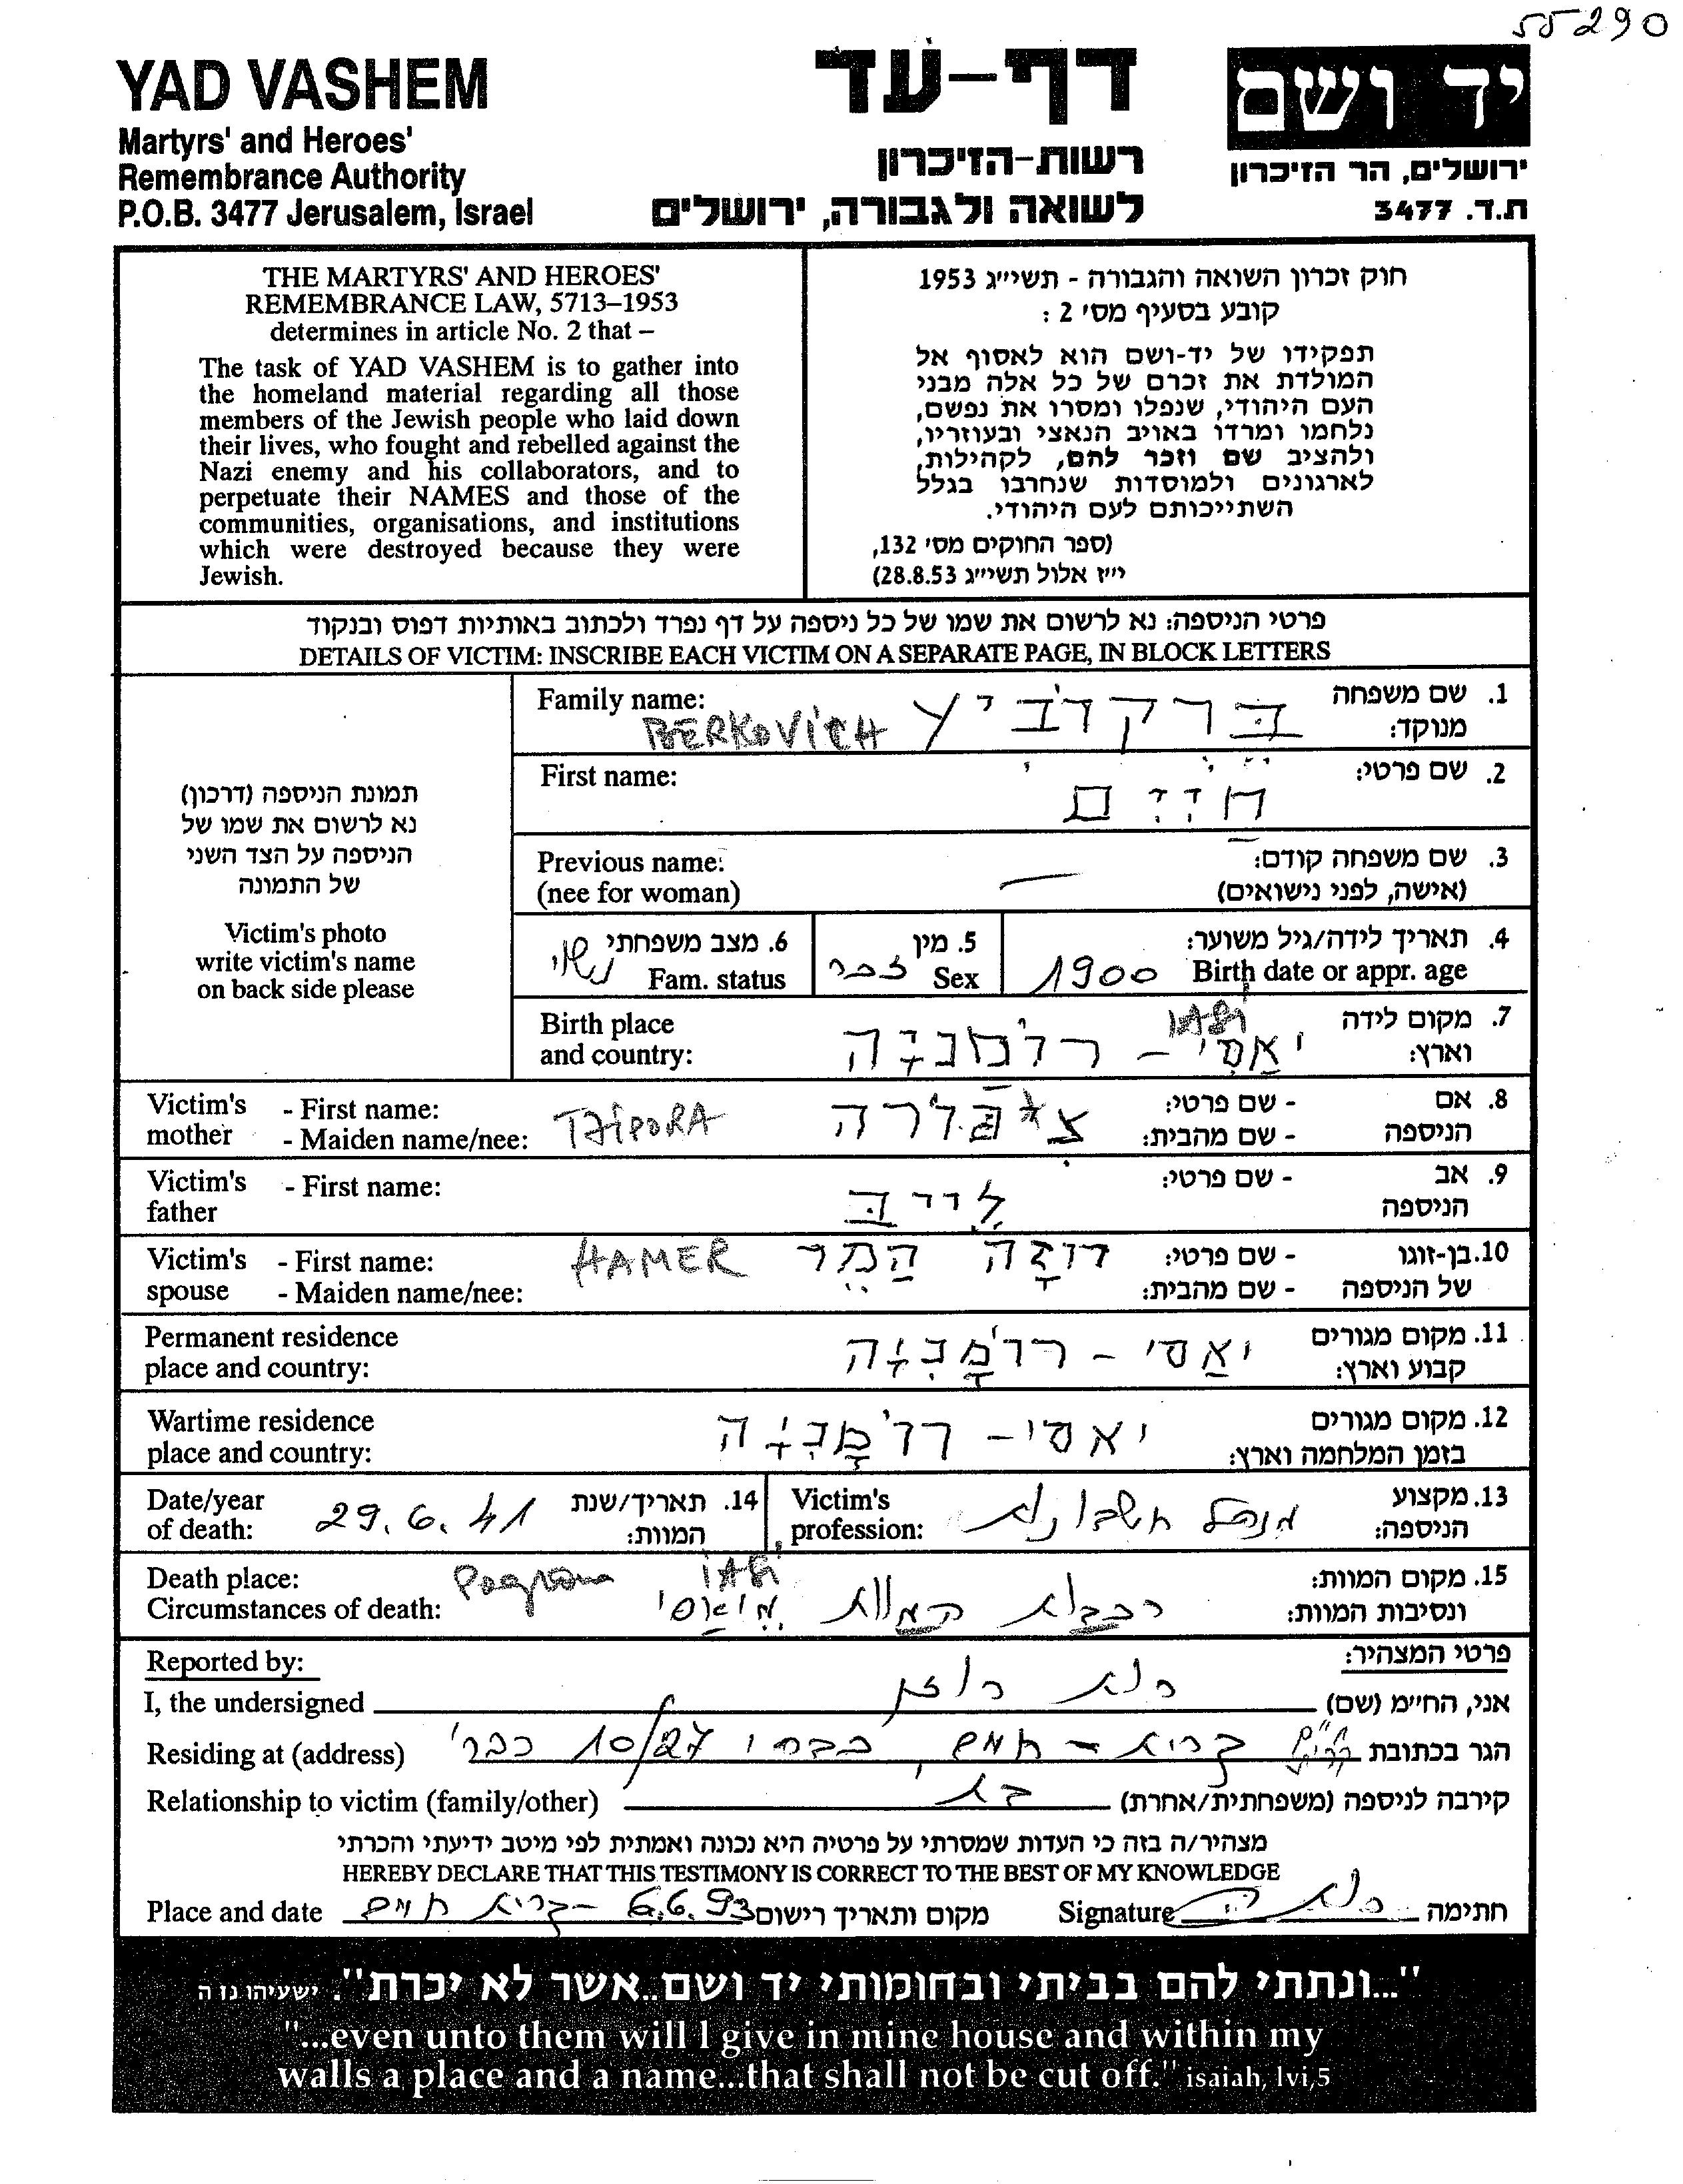 55290
YAD VASHEM
Martyrs' and Heroes'
Remembrance Authority
P.O.B. 3477 Jerusalem, Israel
דף-עד
רשות-הזיכרון
לשואה ולגבורה, ירושלים
יד ושם
ירושלים, הר הזיכרון
ת.ד. 3477
THE MARTYRS' AND HEROES'
REMEMBRANCE LAW, 5713–1953
determines in article No. 2 that –
The task of YAD VASHEM is to gather into
the homeland material regarding all those
members of the Jewish people who laid down
their lives, who fought and rebelled against the
Nazi enemy and his collaborators, and to
perpetuate their NAMES and those of the
communities, organisations, and institutions
which were destroyed because they were
Jewish.
חוק זכרון השואה והגבורה - תשי״ג 1953
קובע בסעיף מס׳ 2 :
תפקידו של יד-ושם הוא לאסוף אל
המולדת את זכרם של כל אלה מבני
העם היהודי, שנפלו ומסרו את נפשם,
נלחמו ומרדו באויב הנאצי ובעוזריו,
ולהציב שם וזכר להם, לקהילות,
לארגונים ולמוסדות שנחרבו בגלל
השתייכותם לעם היהודי.
(ספר החוקים מס׳ 132,
י״ז אלול תשי״ג 28.8.53)
פרטי הניספה: נא לרשום את שמו של כל ניספה על דף נפרד ולכתוב באותיות דפוס ובנקוד
DETAILS OF VICTIM: INSCRIBE EACH VICTIM ON A SEPARATE PAGE, IN BLOCK LETTERS
תמונת הניספה (דרכון)
נא לרשום את שמו של
הניספה על הצד השני
של התמונה
Victim's photo
write victim's name
on back side please
Family name: BERKOVICH ברקוביץ 1. שם משפחה
מנוקד:
First name: חיים 2. שם פרטי:
Previous name: 3. שם משפחה קודם:
(nee for woman) — (אישה, לפני נישואים)
4. תאריך לידה/גיל משוער: 5. מין 6. מצב משפחתי
Birth date or appr. age 1900 Sex זכר Fam. status נשוי
Birth place IASI 7. מקום לידה
and country: יאסי - רומניה וארץ:
Victim's - First name: - שם פרטי: 8. אם
mother - Maiden name/nee: TZIPORA ציפורה - שם מהבית: הניספה
Victim's - First name: - שם פרטי: 9. אב
father לייב הניספה
Victim's - First name: HAMER רוזה המר - שם פרטי: 10. בן-זוגו
spouse - Maiden name/nee: - שם מהבית: של הניספה
Permanent residence 11. מקום מגורים
place and country: יאסי - רומניה קבוע וארץ:
Wartime residence 12. מקום מגורים
place and country: יאסי - רומניה בזמן המלחמה וארץ:
Date/year 14. תאריך/שנת Victim's 13. מקצוע
of death: 29.6.41 המוות: profession: מנהל חשבונות הניספה:
Death place: Pogrom IASI 15. מקום המוות:
Circumstances of death: רכבת המוות מיאסי ונסיבות המוות:
Reported by: פרטי המצהיר:
I, the undersigned אני, החי״מ (שם)
Residing at (address) קרית - חיים 10/27 הגר בכתובת
Relationship to victim (family/other) בת קירבה לניספה (משפחתית/אחרת)
מצהיר/ה בזה כי העדות שמסרתי על פרטיה היא נכונה ואמתית לפי מיטב ידיעתי והכרתי
HEREBY DECLARE THAT THIS TESTIMONY IS CORRECT TO THE BEST OF MY KNOWLEDGE
Place and date קרית חיים - 6.6.93 מקום ותאריך רישום Signature חתימה
"...ונתתי להם בביתי ובחומותי יד ושם..אשר לא יכרת". ישעיהו נו ה
"...even unto them will I give in mine house and within my
walls a place and a name...that shall not be cut off." isaiah, lvi,5